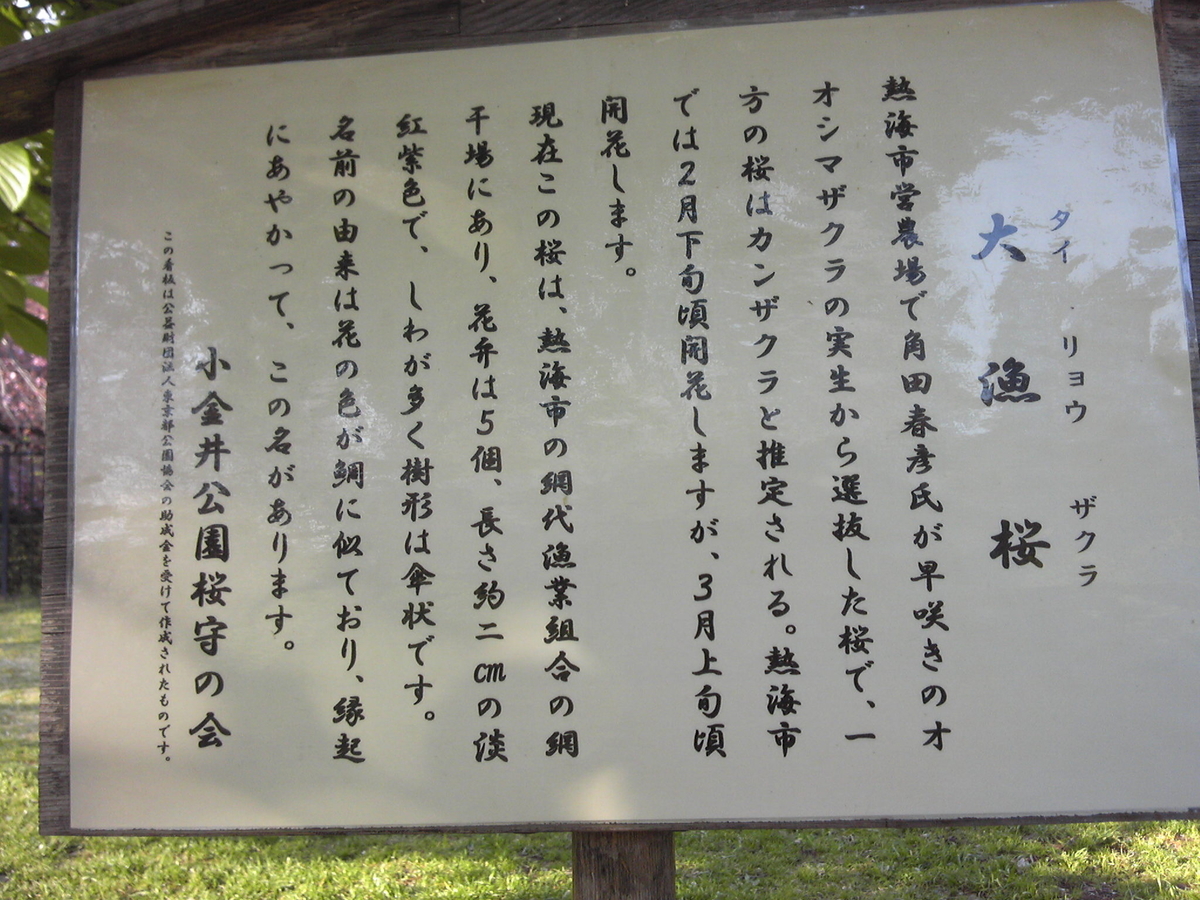 タイ リョウ ザクラ
大漁桜
熱海市営農場で角田春彦氏が早咲きのオ
オシマザクラの実生から選抜した桜で、一
方の桜はカンザクラと推定される。熱海市
では2月下旬頃開花しますが、3月上旬頃
開花します。
現在この桜は、熱海市の網代漁業組合の網
干場にあり、花弁は5個、長さ約二㎝の淡
紅紫色で、しわが多く樹形は傘状です。
名前の由来は花の色が鯛に似ており、縁起
にあやかって、この名があります。
小金井公園桜守の会
この看板は公益財団法人東京都公園協会の助成金を受けて作成されたものです。